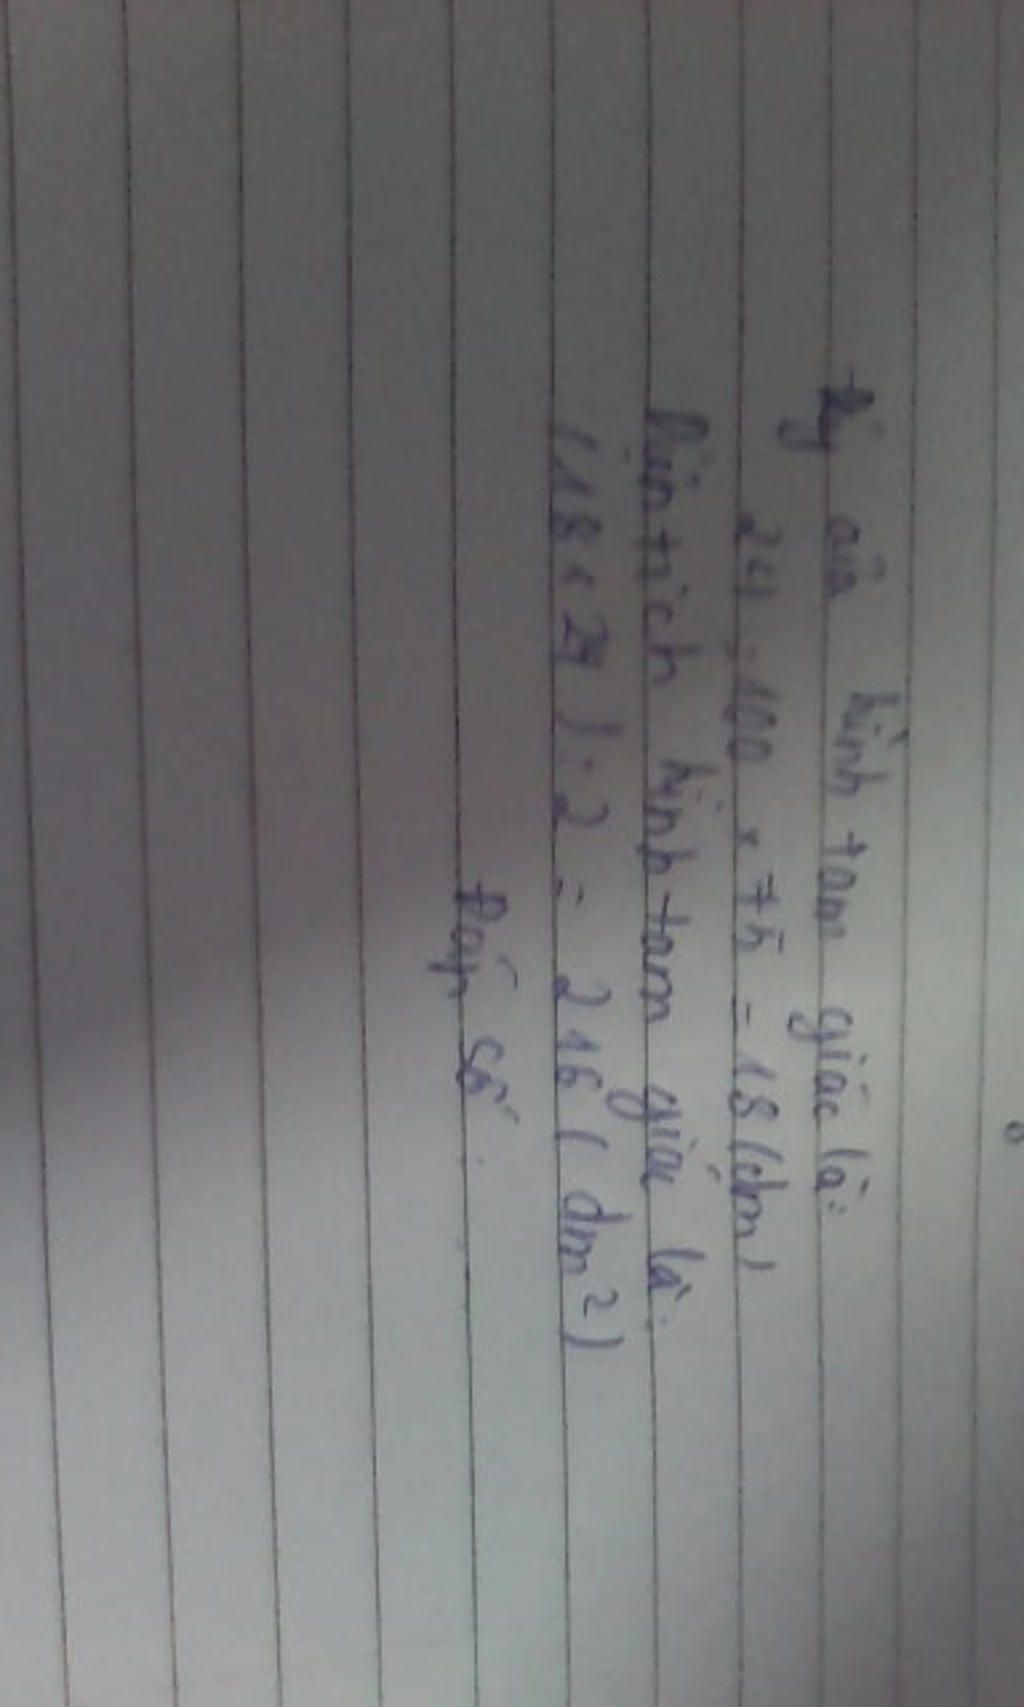 Đáy của hình tam giác là:
24 : 100 x 75 = 18 (dm)
Diện tích hình tam giác là:
(18 x 24) : 2 = 216 (dm²)
Đáp số